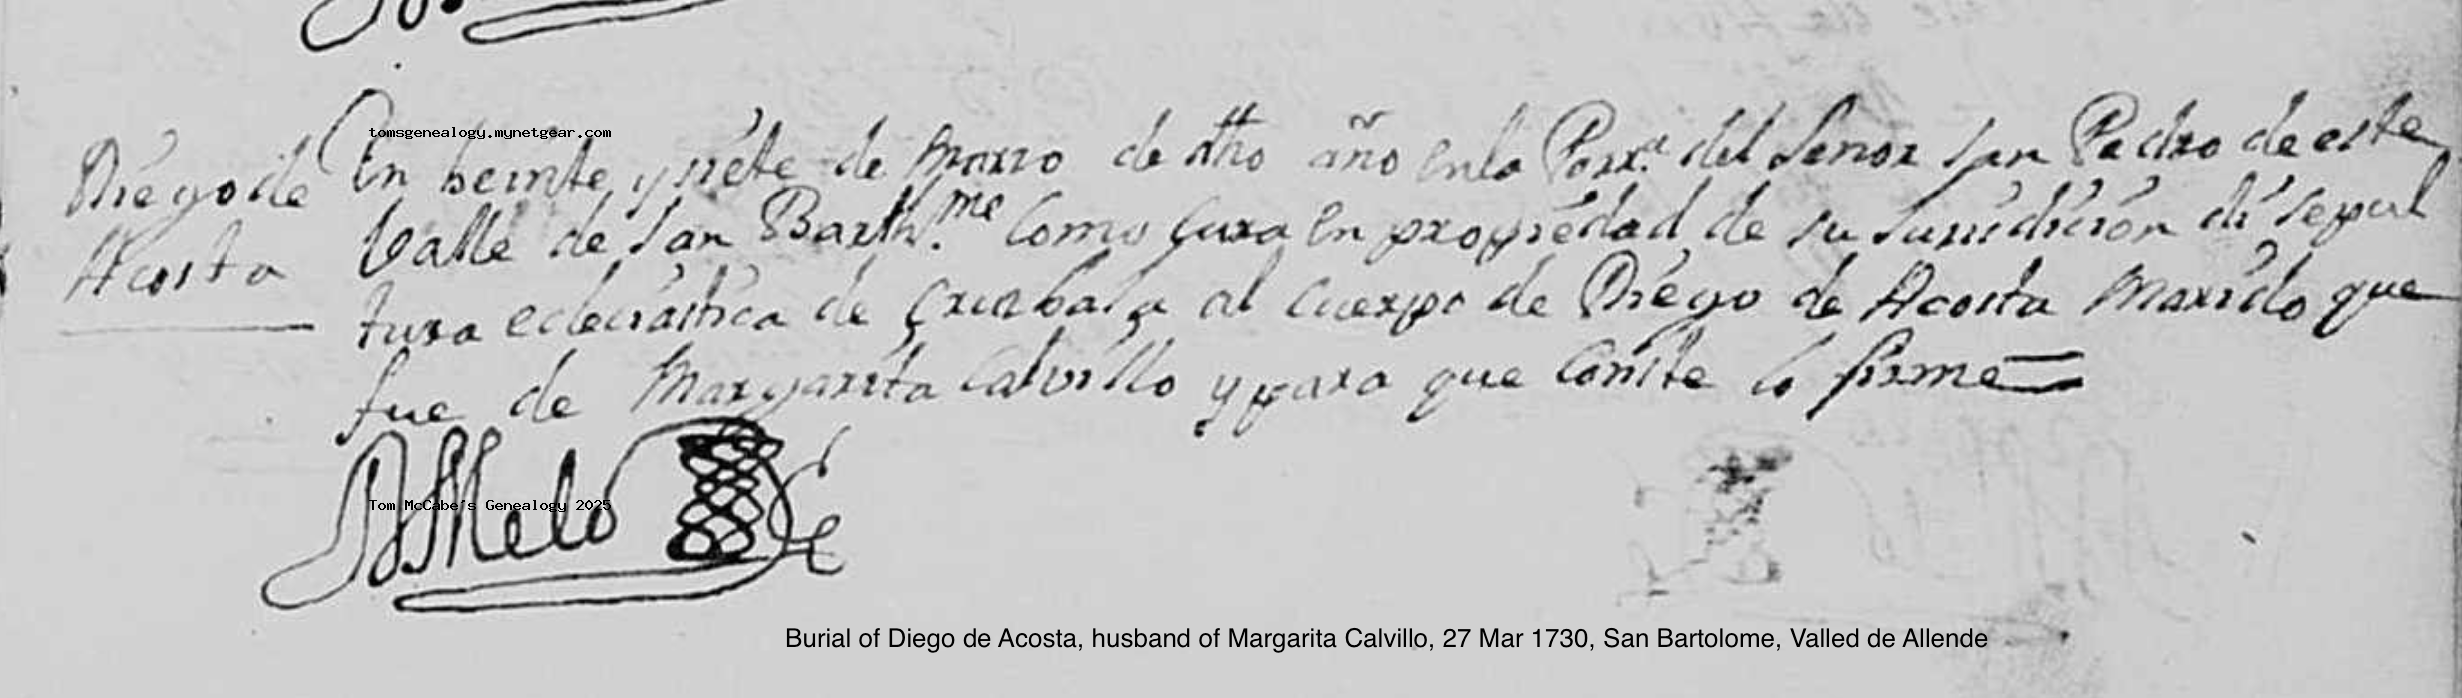 tomsgenealogy.mynetgear.com
Diego de
Acosta
En beinte y siete de Marzo de dho año en la Parra. del Senor San Pedro de este
Valle de San Barthme. Como Cura en propriedad de su Jurisdicion di sepul
tura eclesiastica de Cruz baja al cuerpo de Diego de Acosta Marido que
fue de Margarita Calvillo y para que Conste lo firme
Melo
Tom McCabe's Genealogy 2025
Burial of Diego de Acosta, husband of Margarita Calvillo, 27 Mar 1730, San Bartolome, Valled de Allende